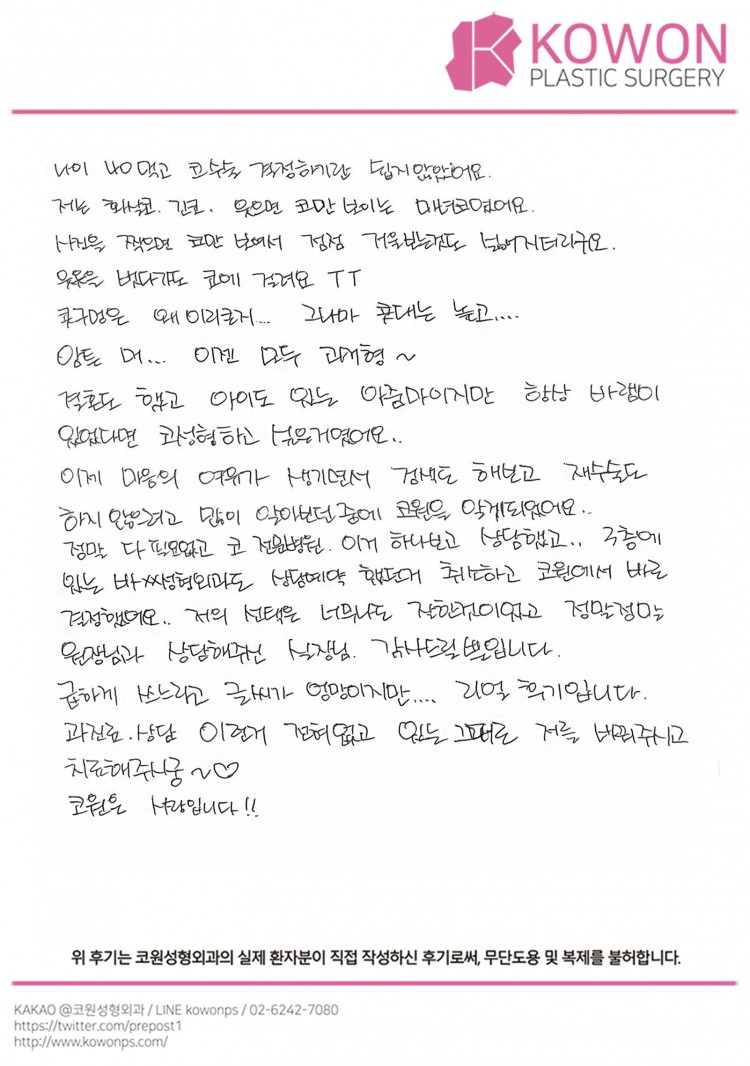 KOWON
PLASTIC SURGERY
나이 40 먹고 코수술 결정하기란 쉽지않았어요.
저는 화살코. 긴코. 웃으면 코만 보이는 마녀코였어요.
사진을 찍으면 코만 보여서 점점 거울보는것도 싫어지더라구요.
웃옷을 벗다가도 코에 걸려요 ㅜㅜ
콧구멍은 왜이리큰지... 그나마 콧대는 높고....
암튼 머... 이젠 모두 과거형~
결혼도 했고 아이도 있는 아줌마이지만 항상 바램이
있었다면 코성형하고 싶은거였어요..
이제 마음의 여유가 생기면서 검색도 해보고 재수술도
하지않으려고 많이 알아보던중에 코원을 알게되었어요..
정말 다 필요없고 코 전문병원. 이거 하나보고 상담했고.. 층에
있는 바xx성형외과도 상담예약 했던거 취소하고 코원에서 바로
결정했어요.. 저의 선택은 너무나도 잘한것이였고 정말정말
원장님과 상담해주신 실장님. 감사드릴뿐입니다.
급하게 쓰느라고 글씨가 엉망이지만.... 리얼 후기입니다.
과진료.상담 이런거 전혀없고 있는 그대로 저를 바꿔주시고
치료해주시궁~♡
코원은 사랑입니다!!
위 후기는 코원성형외과의 실제 환자분이 직접 작성하신 후기로써, 무단도용 및 복제를 불허합니다.
KAKAO @코원성형외과 / LINE kowonps / 02-6242-7080
https://twitter.com/prepost1
http://www.kowonps.com/